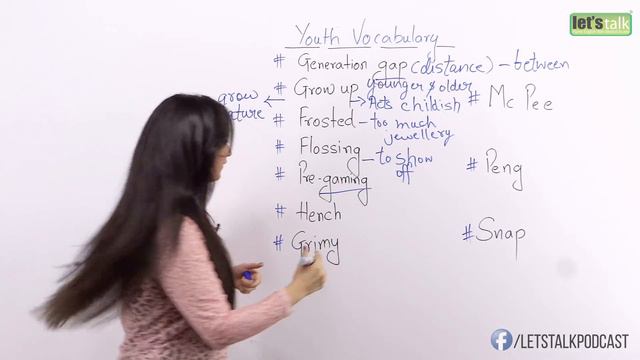 let'stalk
Youth Vocabulary
# Generation gap (distance) - between
# Grow up younger & older
grow
ature
Acts childish
# Mc Pee
# Frosted - too much
jewellery
# Flossing - to show
off
# Pre-gaming
# Peng
# Hench
# Grimy
# Snap
/LETSTALKPODCAST